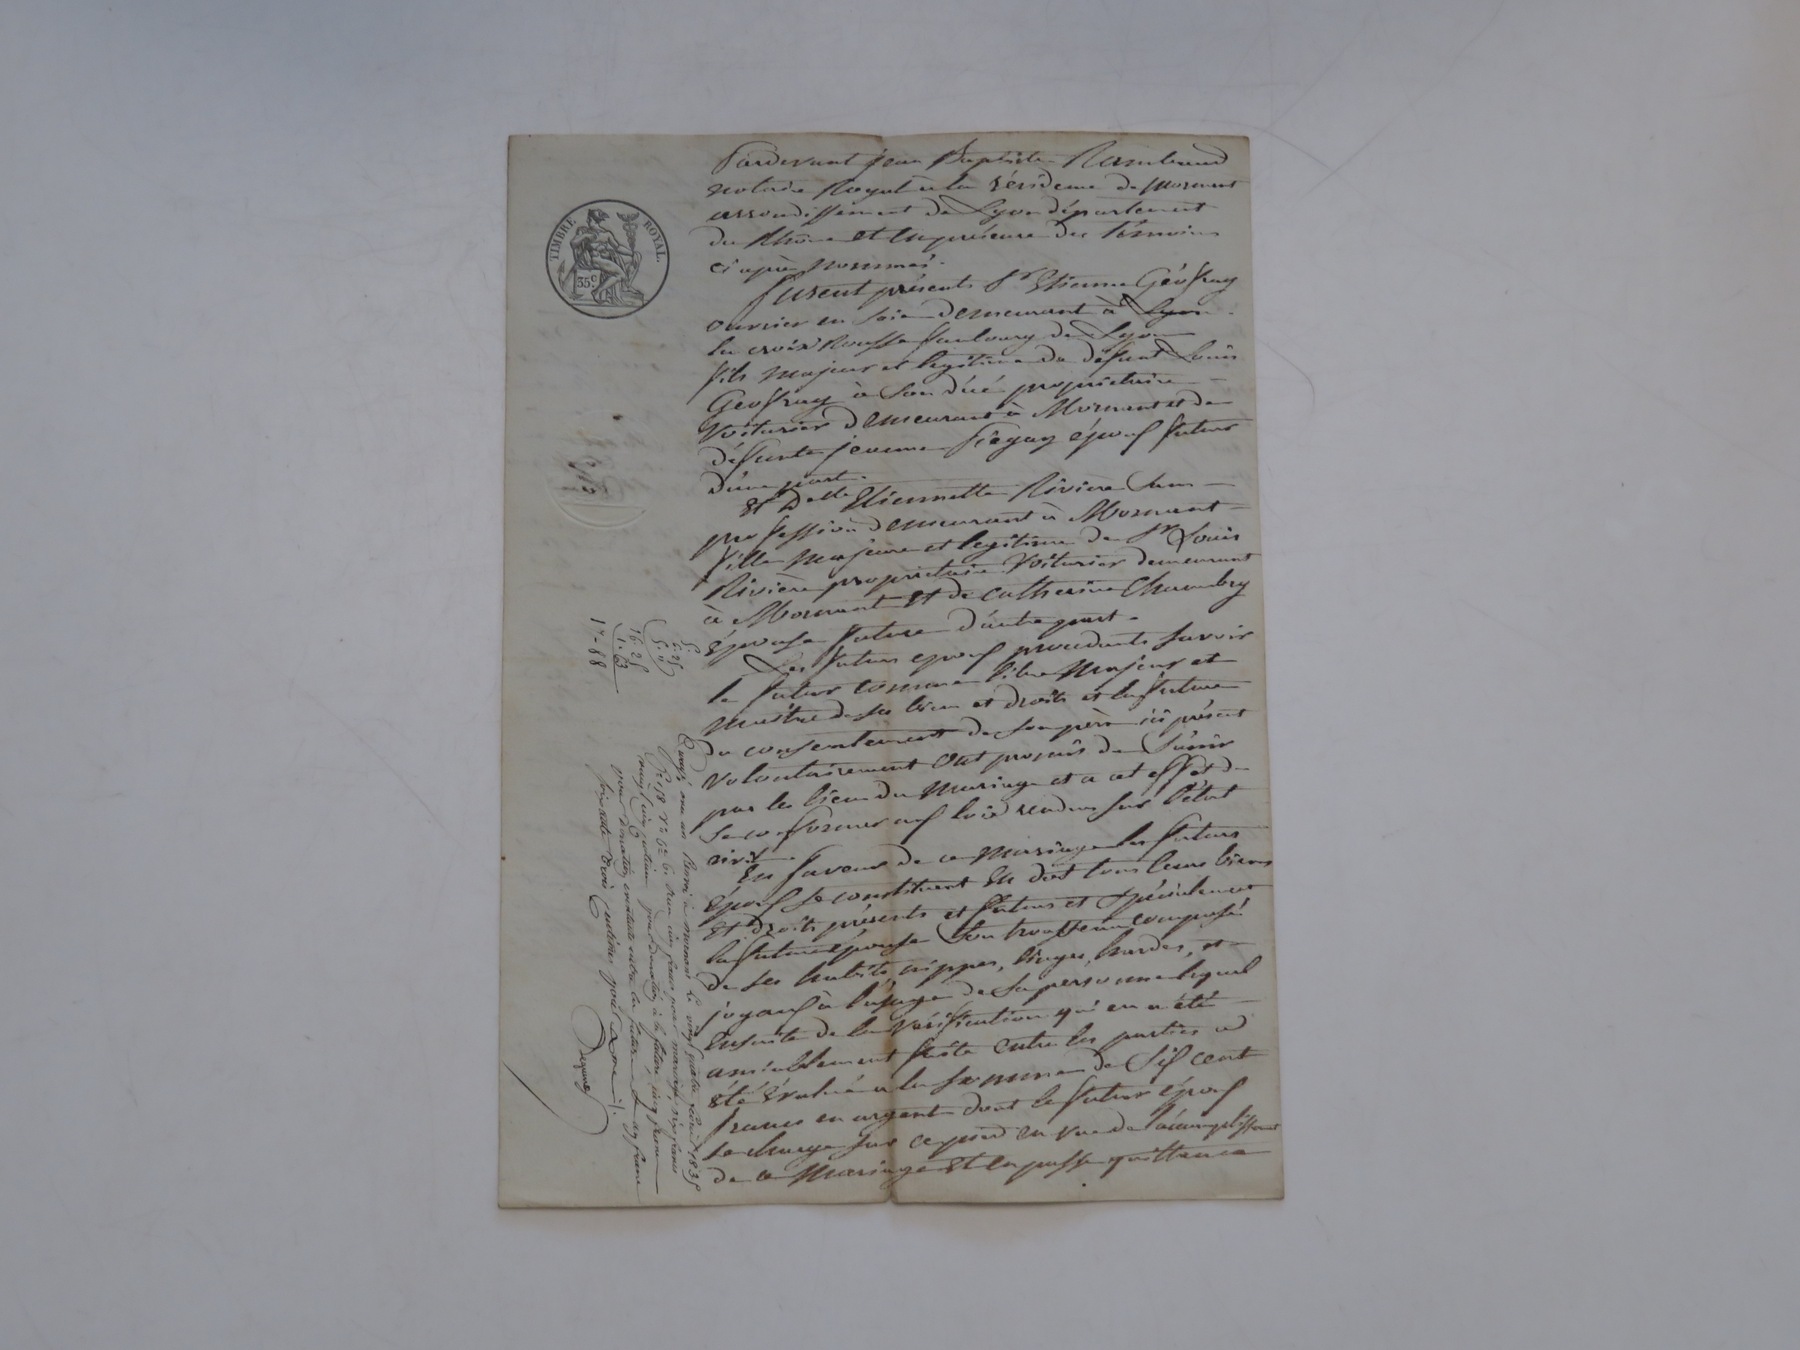 TIMBRE ROYAL.
35c
Pardevant jean Baptiste Rambaud
notaire Royal à la résidence de Mornant
arrondissement de Lyon département
du Rhône et en présence des témoins
ci après nommés.
furent présents Sr Etienne Géofray
ouvrier en soie demeurant à Lyon
la croix Rousse faubourg de Lyon
fils majeur et legitime de défunt Louis
Geofray à son décé propriétaire
Voiturier demeurant à Mornant et de
défunte jeanne époux futur
d'une part.
Et Delle Etiennette Rivière sans
profession demeurant à Mornant
fille majeure et legitime de Sr Louis
Rivière propriétaire Voiturier demeurant
à Mornant Et de Catherine Chambry
épouse future d'autre part.
Les futurs epoux procedants savoir
le futur comme libre majeur et
maitre de ses biens et droits et la future
du consentement de son père ici présent
volontairement ont promis de s'unir
par les liens du mariage et a cet effet de
se conformer aux lois rendues sur l'état
civil.
En faveur de ce mariage les futurs
époux se constituent en dot tous leurs biens
Et droits présents et futurs et spécialement
la future épouse son trousseau composé
de ses habits, nippes, linges, hardes, et
joyaux à l'usage de sa personne lequel
ensuite de la vérification qui en a été
amiablement faite entre les parties a
été évalué à la somme de Six cent
francs en argent dont le futur époux
se charge sur ce pied en vue de l'accomplissement
de ce mariage Et en passe quittance
16. 25
1. 63
17. 88